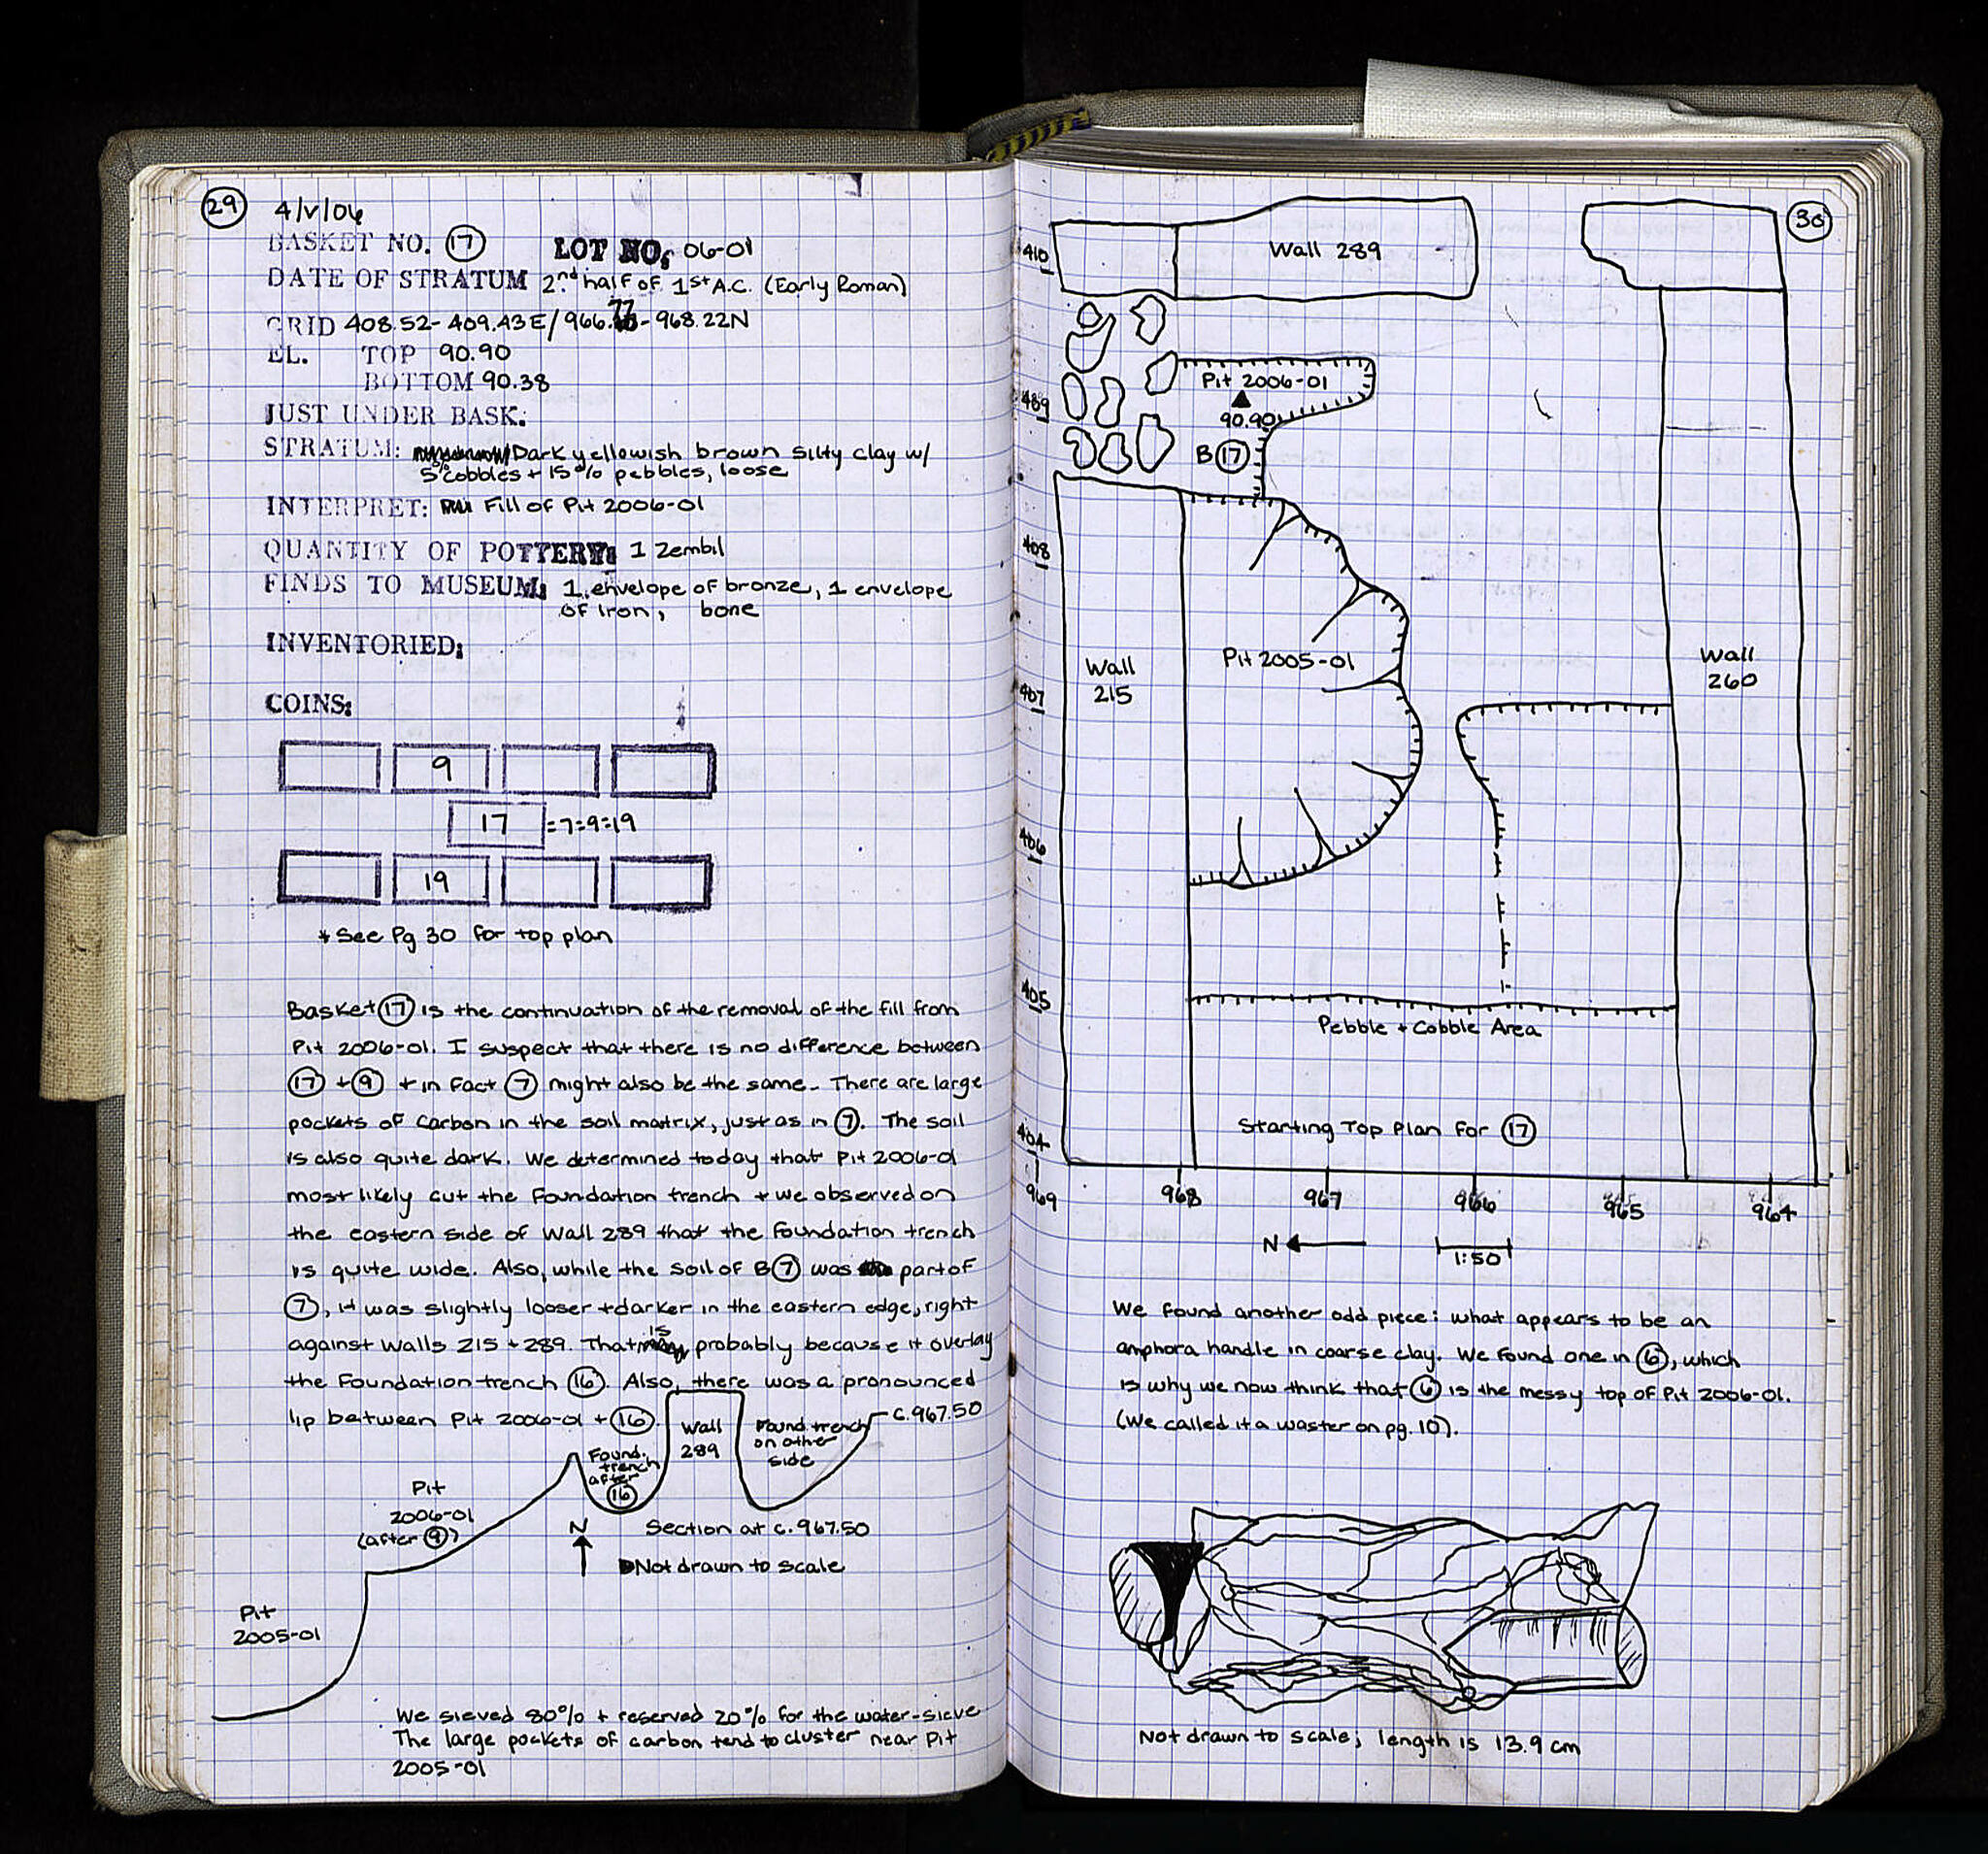 29
4/V/06
BASKET NO. 17 LOT NO. 06-01
DATE OF STRATUM 2nd half of 1st A.C. (Early Roman)
GRID 408.52-409.43E/966.77-968.22N
EL. TOP 90.90
BOTTOM 90.38
JUST UNDER BASK:
STRATUM: Dark yellowish brown silty clay w/
5% cobbles + 15% pebbles, loose
INTERPRET: Fill of Pit 2006-01
QUANTITY OF POTTERY: 1 Zembil
FINDS TO MUSEUM: 1 envelope of bronze, 1 envelope
of iron, bone
INVENTORIED:
COINS:
9
17 =7=9=19
19
* See Pg 30 for top plan
Basket 17 is the continuation of the removal of the fill from
Pit 2006-01. I suspect that there is no difference between
17 + 9 + in fact 7 might also be the same. There are large
pockets of carbon in the soil matrix, just as in 7. The soil
is also quite dark. We determined today that Pit 2006-01
most likely cut the foundation trench + we observed on
the eastern side of Wall 289 that the foundation trench
is quite wide. Also, while the soil of B 7 was part of
7, it was slightly looser + darker in the eastern edge, right
against Walls 215 + 289. That is probably because it overlay
the foundation trench 16. Also, there was a pronounced
lip between Pit 2006-01 + 16.
Wall
289
Found. trench
on other
side
c.967.50
Found.
trench
after
16
Pit
2006-01
(after 9)
N
Section at c.967.50
Not drawn to scale
Pit
2005-01
We sieved 80% + reserved 20% for the water-sieve
The large pockets of carbon tend to cluster near Pit
2005-01
30
410
Wall 289
Pit 2006-01
489
90.90
B 17
408
Pit 2005-01
Wall
215
Wall
260
407
406
405
Pebble + Cobble Area
404
Starting Top Plan for 17
969 968 967 966 965 964
N
1:50
We found another odd piece: what appears to be an
amphora handle in coarse clay. We found one in 6, which
is why we now think that 6 is the messy top of Pit 2006-01.
(We called it a waster on pg. 10).
Not drawn to scale; length is 13.9 cm